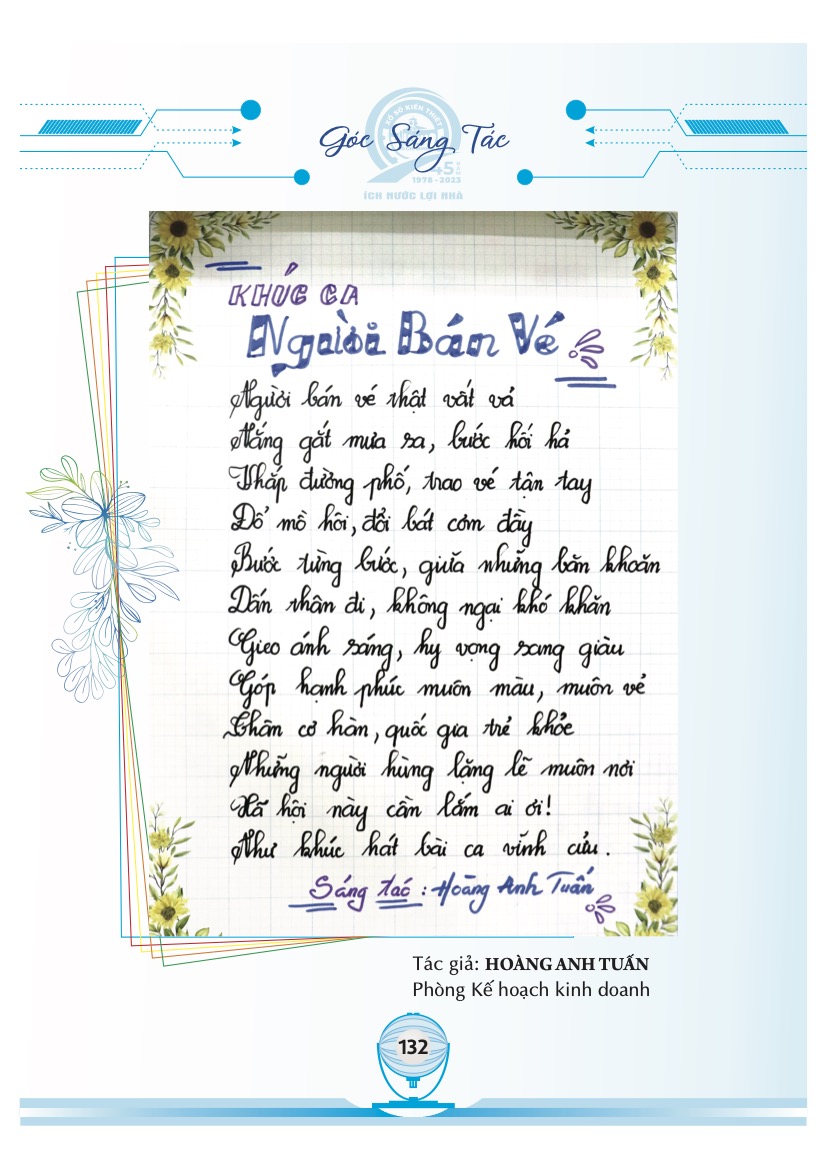 XỔ SỐ KIẾN THIẾT
Góc Sáng Tác
45 NĂM
1978 - 2023
ÍCH NƯỚC LỢI NHÀ
KHÚC CA
Người Bán Vé
Người bán vé thật vất vả
Nắng gắt mưa sa, bước hối hả
Thắp đường phố, trao vé tận tay
Đổ mồ hôi, đổi bát cơm đầy
Bước từng bước, giữa những băn khoăn
Dấn thân đi, không ngại khó khăn
Gieo ánh sáng, hy vọng sang giàu
Góp hạnh phúc muôn màu, muôn vẻ
Chân cơ hàn, quốc gia trẻ khỏe
Những người hùng lặng lẽ muôn nơi
Xã hội này cần lắm ai ơi!
Như khúc hát bài ca vĩnh cửu.
Sáng tác : Hoàng Anh Tuấn
Tác giả: HOÀNG ANH TUẤN
Phòng Kế hoạch kinh doanh
132